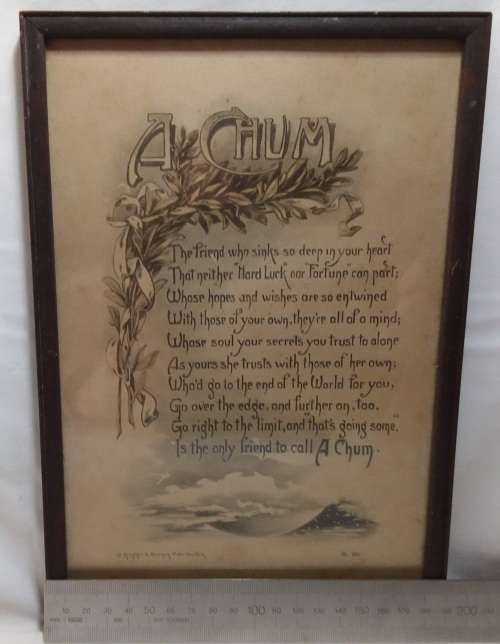 A CHUM
The Friend who sinks so deep in your heart
That neither "Hard Luck" nor "Fortune" can part;
Whose hopes and wishes are so entwined
With those of your own, they're all of a mind;
Whose soul your secrets you trust to alone
As yours she trusts with those of her own;
Who'd go to the end of the World for you,
Go over the edge, and further on, too,
Go right to the limit, and "that's going some,"
Is the only friend to call A Chum.
10 20 30 40 50 60 70 80 90 100 110 120 130 140 150 160 170 180 190 200